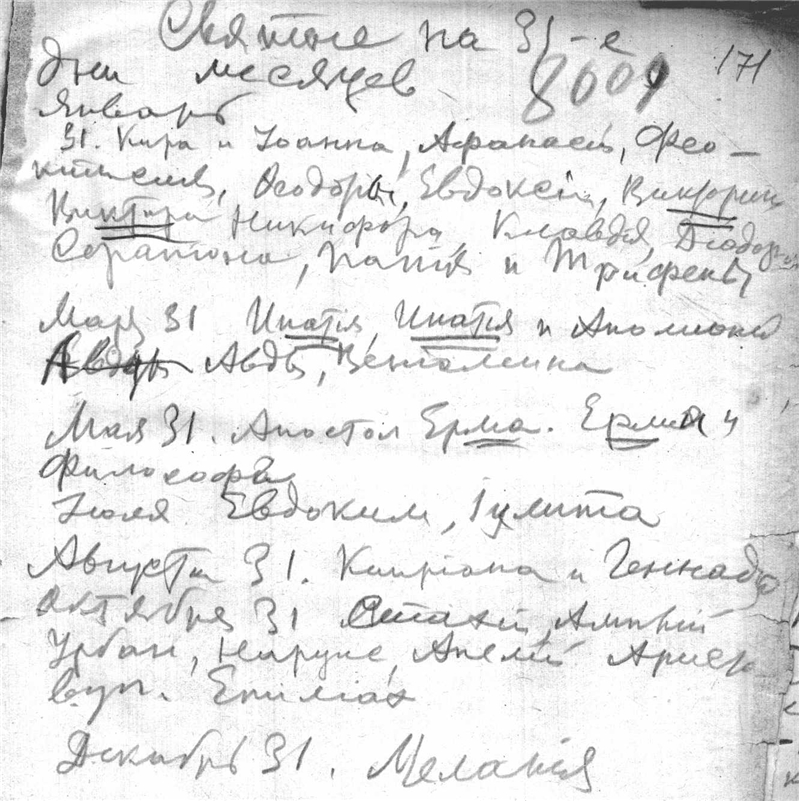 Святые на 31-е
171
дни месяцев 8009
Январь
31. Кира и Iоанна, Афанасiи, Фео-
ктистiя, Феодоры, Евдоксiи, Викторин
Виктора Никифора, Клавдiя, Дiодора
Серапiона, Папiя и Трифены
Март 31 Ипатiя, Ипатiя и Аполлонiй
Авды Авды, Венiамина
Мая 31. Апостол Ерма. Ермiй и
Философ
Iюля Евдоким, Iулита
Августа 31. Кипрiана и Геннадiя
Октября 31 Стахiй, Амплiй
Урбан, Наркис, Апеллiй Арист
вул. Епимах
Декабрь 31. Меланiя